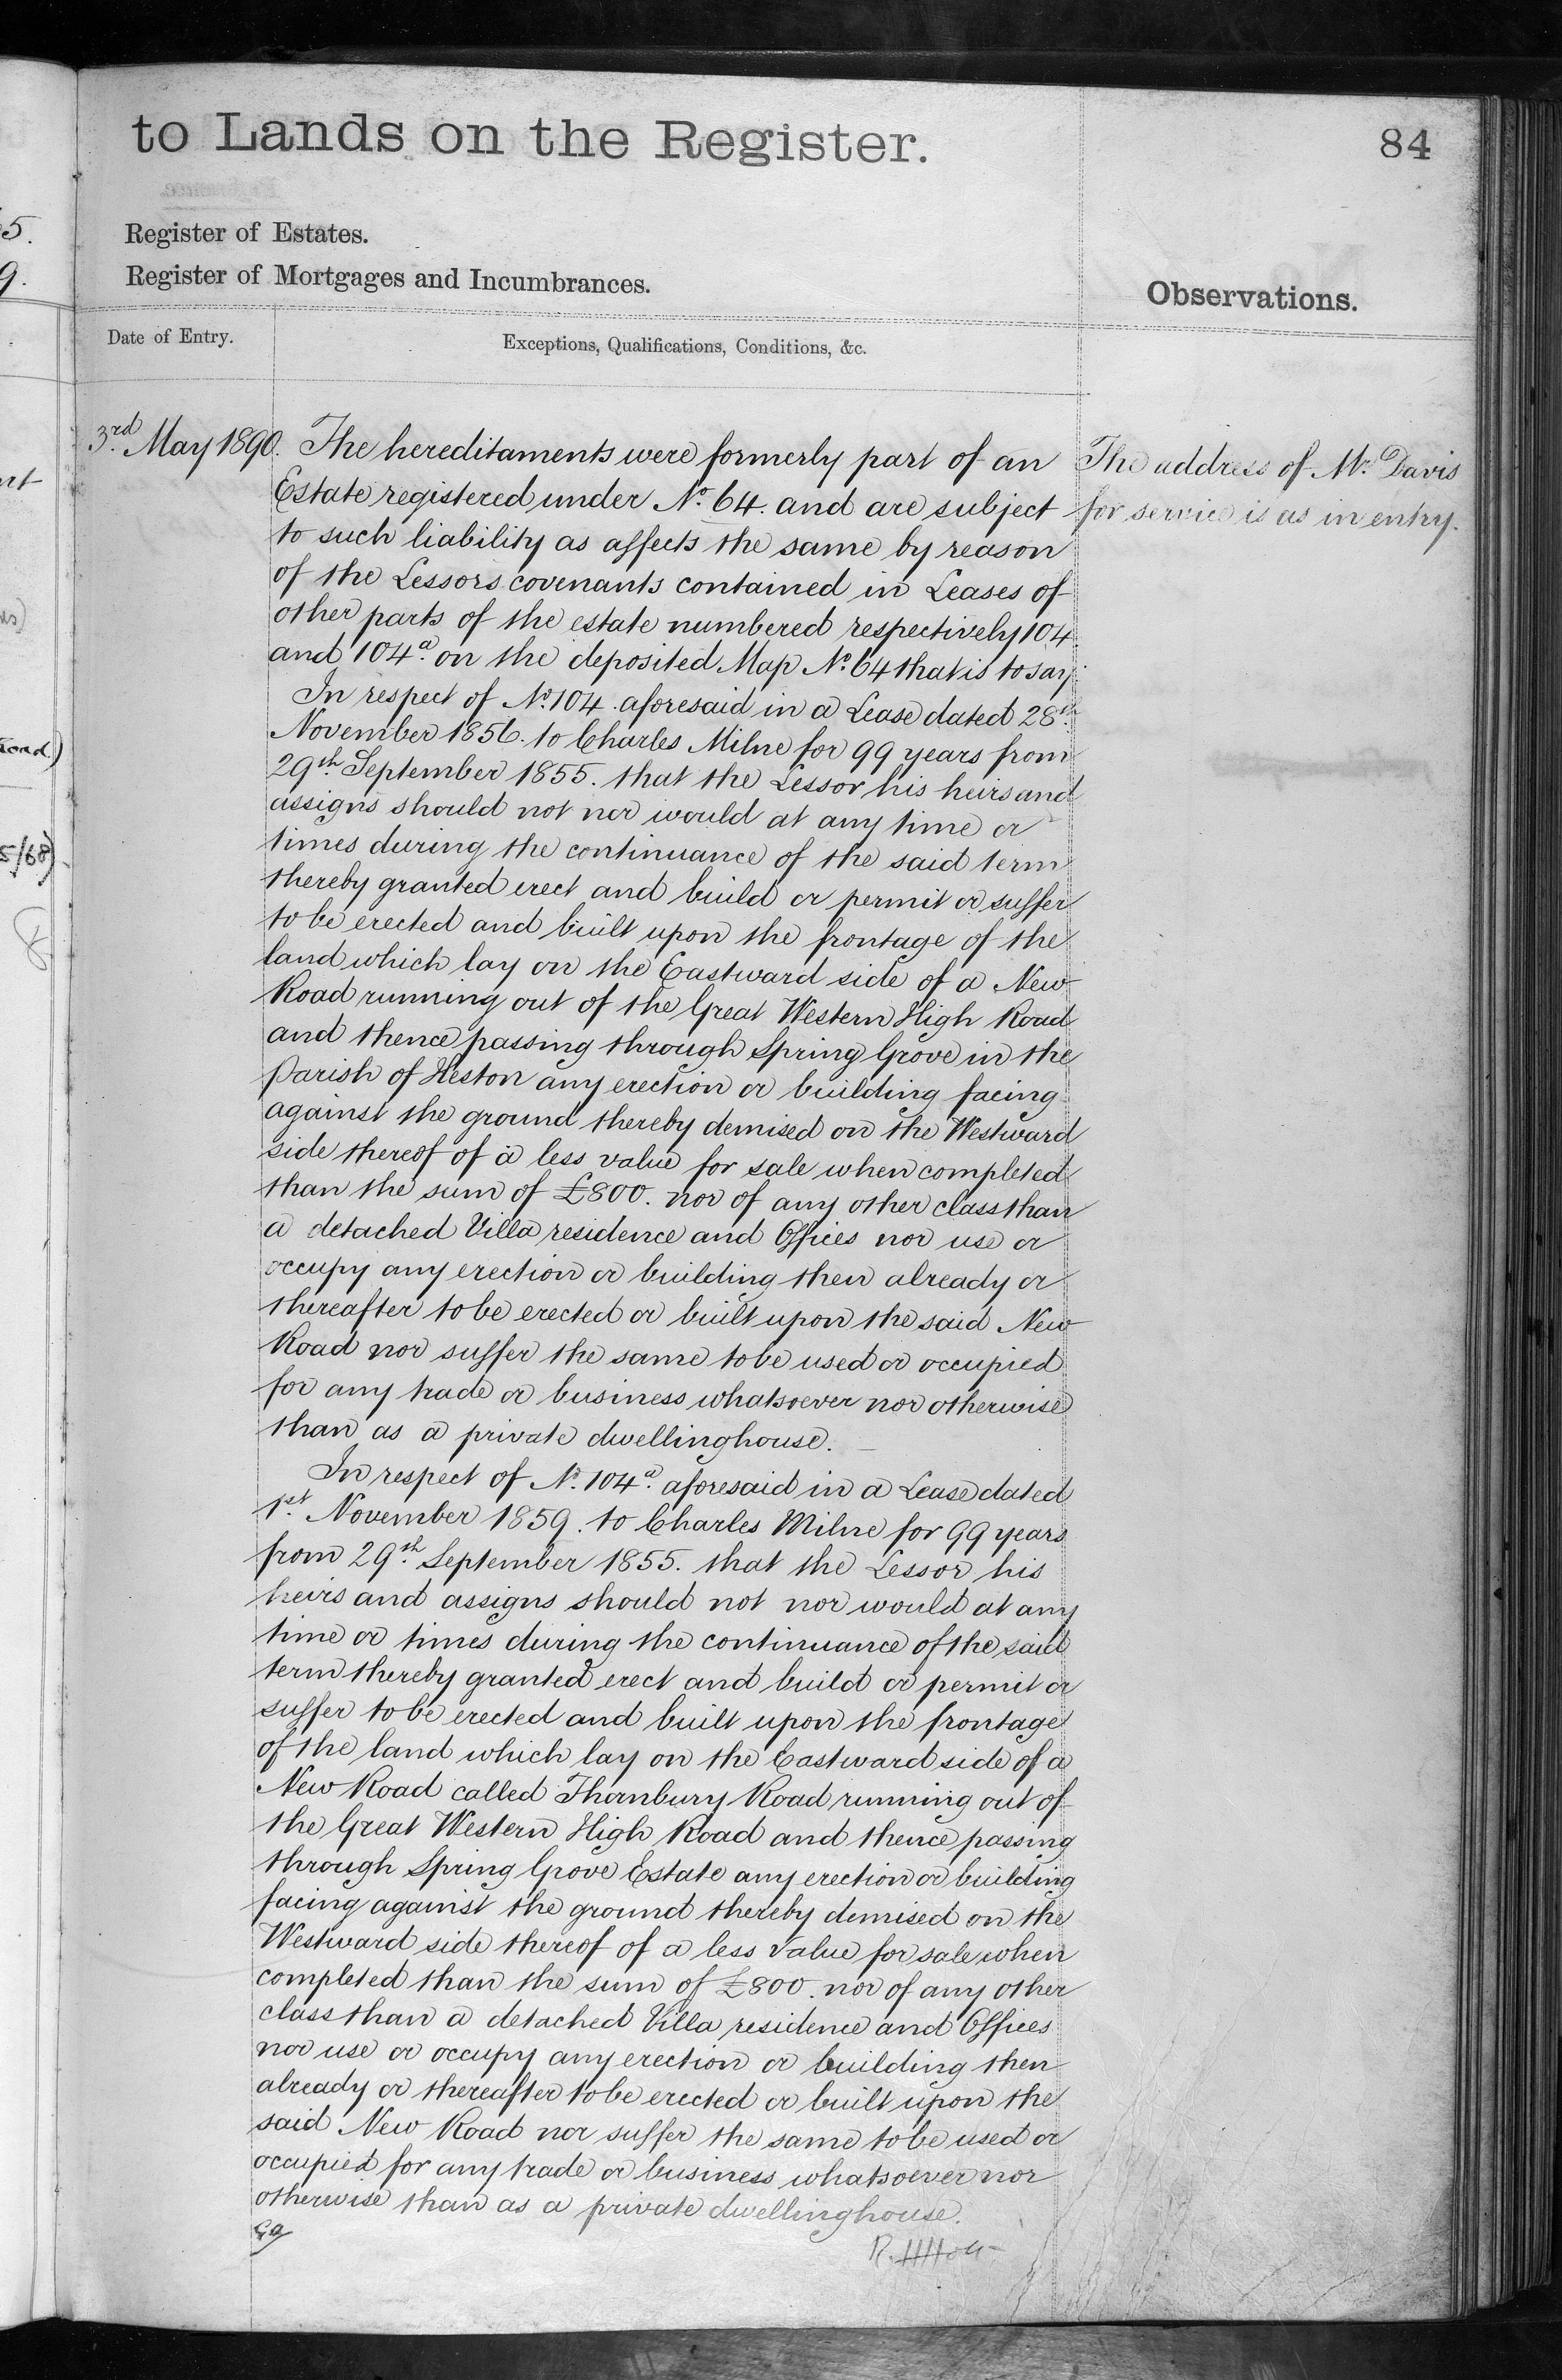 to Lands on the Register.
84
Register of Estates.
Register of Mortgages and Incumbrances.
Observations.
Date of Entry.
Exceptions, Qualifications, Conditions, &c.
3rd May 1890.
The hereditaments were formerly part of an
Estate registered under No. 64. and are subject
to such liability as affects the same by reason
of the Lessors covenants contained in Leases of
other parts of the estate numbered respectively 104
and 104a. on the deposited Map No. 64 that is to say:
In respect of No. 104 aforesaid in a Lease dated 28th
November 1856. to Charles Milne for 99 years from
29th September 1855. that the Lessor his heirs and
assigns should not nor would at any time or
times during the continuance of the said term
thereby granted erect and build or permit or suffer
to be erected and built upon the frontage of the
land which lay on the Eastward side of a New
Road running out of the Great Western High Road
and thence passing through Spring Grove in the
Parish of Heston any erection or building facing
against the ground thereby demised on the Westward
side thereof of a less value for sale when completed
than the sum of £800. nor of any other class than
a detached Villa residence and Offices nor use or
occupy any erection or building then already or
thereafter to be erected or built upon the said New
Road nor suffer the same to be used or occupied
for any trade or business whatsoever nor otherwise
than as a private dwellinghouse.
In respect of No. 104a. aforesaid in a Lease dated
1st November 1859. to Charles Milne for 99 years
from 29th September 1855. that the Lessor his
heirs and assigns should not nor would at any
time or times during the continuance of the said
term thereby granted erect and build or permit or
suffer to be erected and built upon the frontage
of the land which lay on the Eastward side of a
New Road called Thornbury Road running out of
the Great Western High Road and thence passing
through Spring Grove Estate any erection or building
facing against the ground thereby demised on the
Westward side thereof of a less value for sale when
completed than the sum of £800. nor of any other
class than a detached Villa residence and Offices
nor use or occupy any erection or building then
already or thereafter to be erected or built upon the
said New Road nor suffer the same to be used or
occupied for any trade or business whatsoever nor
otherwise than as a private dwellinghouse.
The address of Mr. Davis
for service is as in entry.